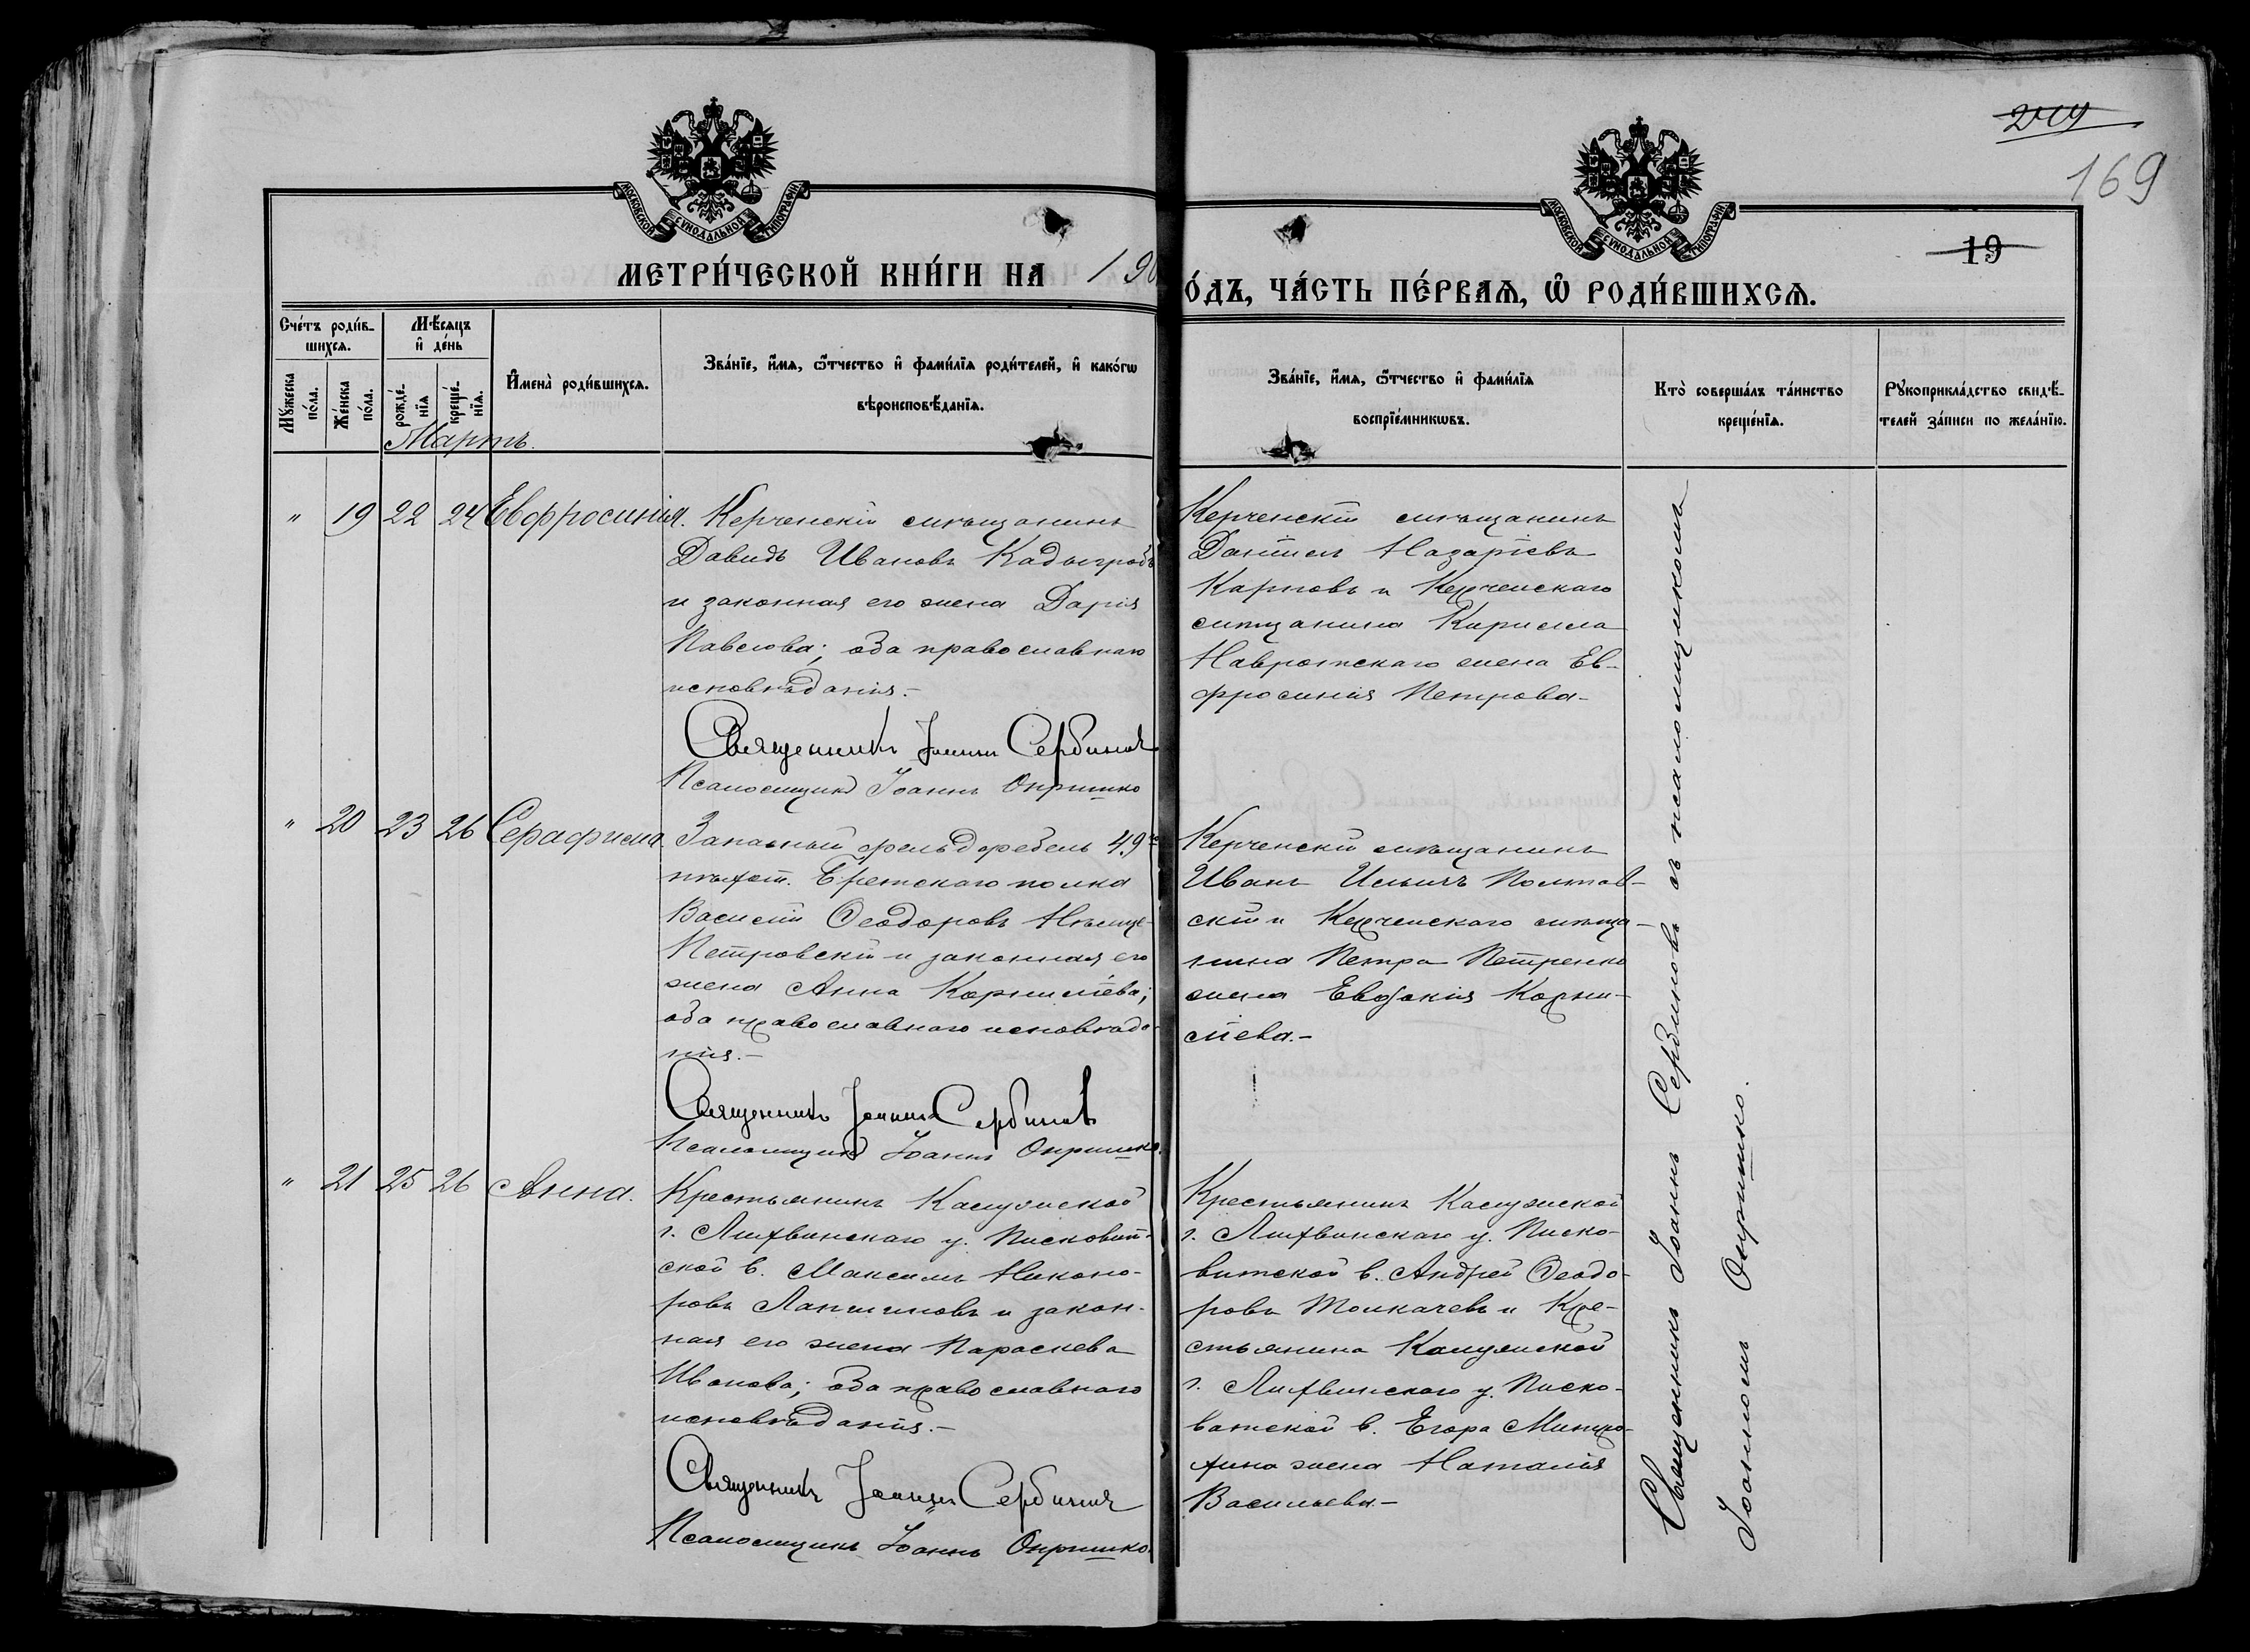 249
169
МОСКОВСКОЙ СѴНОДАЛЬНОЙ ТИПОГРАФІИ
МОСКОВСКОЙ СѴНОДАЛЬНОЙ ТИПОГРАФІИ
19
МЕТРИ́ЧЕСКОЙ КНИ́ГИ НА 190
О́ДЪ, ЧА́СТЬ ПЕ́РВАѦ, Ѡ҆ РОДИ́ВШИХСѦ.
Сче́тъ роди́в-
шихсѧ.
Мѣ́сѧцъ
и҆ де́нь
Мꙋ́жеска по́ла.
Же́нска по́ла.
рожде́-нїѧ
креще́-нїѧ.
И҆мена̀ роди́вшихсѧ.
Зва́нїе, и҆́мѧ, ѻ҆́тчество и҆ фами́лїѧ роди́телей, и҆ како́гѡ
вѣроисповѣ́данїѧ.
Зва́нїе, и҆́мѧ, ѻ҆́тчество и҆ фами́лїѧ
воспрїе́мникѡвъ.
Кто̀ соверша́лъ та́инство
креще́нїѧ.
Рꙋкоприкла́дство свидѣ́-
телей за́писи по жела́нїю.
Мартъ.
" 19 22 24 Евфросинія.
Керченскій мѣщанинъ
Давидъ Ивановъ Кадыгробъ
и законная его жена Дарія
Павлова; оба православнаго
исповѣданія.-
Священникъ Іоаннъ Сербиновъ
Псаломщикъ Іоаннъ Опришко
Керченскій мѣщанинъ
Даніилъ Назаріевъ
Карповъ и Керченскаго
мѣщанина Кирилла
Навротскаго жена Ев-
фросинія Петрова-
" 20 23 26 Серафима.
Запасный фельдфебель 49го
пѣхот. Брестскаго полка
Василій Ѳеодоровъ Нѣмце-
Петровскій и законная его
жена Анна Корниліева;
оба православнаго исповѣда-
нія.-
Священникъ Іоаннъ Сербиновъ
Псаломщикъ Іоаннъ Опришко.
Керченскій мѣщанинъ
Иванъ Ильичъ Полтав-
скій и Керченскаго мѣща-
нина Петра Петренко
жена Евдокія Корни-
ліева.-
" 21 25 26 Анна.
Крестьянинъ Калужской
г. Лихвинскаго у. Писковат-
ской в. Максимъ Никано-
ровъ Лапшиновъ и закон-
ная его жена Параскева
Иванова; оба православнаго
исповѣданія.-
Священникъ Іоаннъ Сербиновъ
Псаломщикъ Іоаннъ Опришко.
Крестьянинъ Калужской
г. Лихвинскаго у. Писко-
ватской в. Андрей Ѳеодо-
ровъ Толкачевъ и Кре-
стьянина Калужской
г. Лихвинскаго у. Писко-
ватской в. Егора Митро-
хина жена Наталія
Васильева.-
Священникъ Іоаннъ Сербиновъ съ псаломщикомъ
Іоанномъ Опришко.